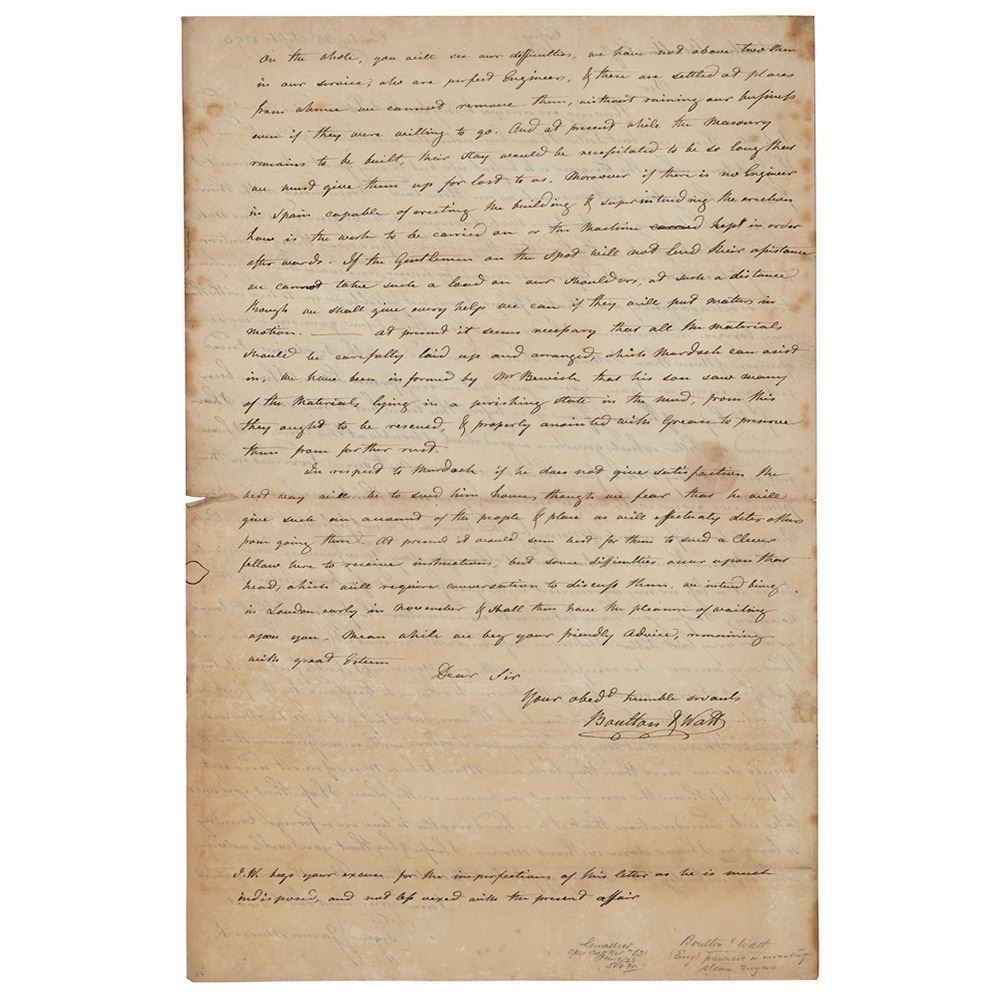 On the whole, you will see our difficulties, we have not above two Men
in our service, who are perfect Engineers, & these are settled at places
from whence we cannot remove them, without ruining our business
even if they were willing to go. And at present while the Masonry
remains to be built, their stay would be necessitated to be so long that
we must give them up for lost to us. Moreover if there is no Engineer
in Spain capable of erecting the building & superintending the erection
how is the work to be carried on or the Machine carried kept in order
after wards. If the Gentlemen on the Spot will not lend their assistance
we cannot take such a load on our shoulders, at such a distance
though we shall give every help we can if they will put matters in
motion. —— at present it seems necessary that all the materials
should be carefully laid up and arranged, which Murdach can assist
in, we have been informed by Mr that his son saw many
of the Materials, lying in a perishing state in the mud, from this
they ought to be rescued, & properly anointed with Grease to preserve
them from further rust.
In respect to Murdach if he does not give satisfaction the
best way will be to send him home, though we fear that he will
give such an account of the people & place as will effectualy deter others
from going there. At present it would seem best for them to send a Clever
fellow here to receive instructions, but some difficulties occur upon that
head, which will require conversation to discuss them, we intend being
in London early in November & shall then have the pleasure of waiting
upon you. Mean while we beg your friendly Advice, remaining
with great Esteem
Dear Sir
Your obedt humble servants
Boulton & Watt
J.W. begs your excuse for the imperfections of this letter as he is much
indisposed, and not less vexed with the present affair
Boulton & Watt
Engl partners in inventing
steam engine